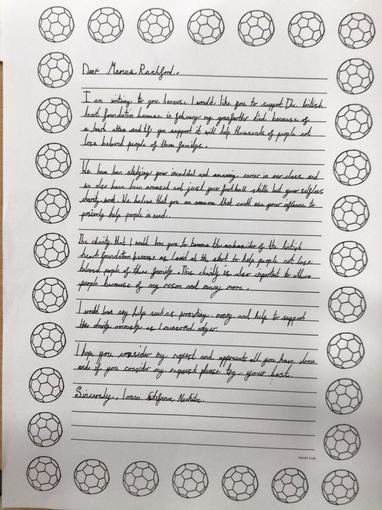 Dear Marcus Rashford,
I am writing to you because I would like you to support The british
heart foundation because in february my grandfather died because of
a heart attack and if you support it will help thousands of people not
lose beloved people of their families.
We have been studying your incredible and amazing career in our class and
we also have been amazed not just your football skills but your selfless
charity work. We believe that you are someone that could use your influence to
positively help people in need.
The charity that I would love you to become the ambassador of the british
heart foundation because as I said at the start to help people not lose
beloved people of their family. This charity is also important to others
people because of my reason and many more.
I would love any help such as providing money and help to support
the charity as I
I hope you consider my request and appreciate all you have done
and if you consider my request please try your best.
Sincerely,